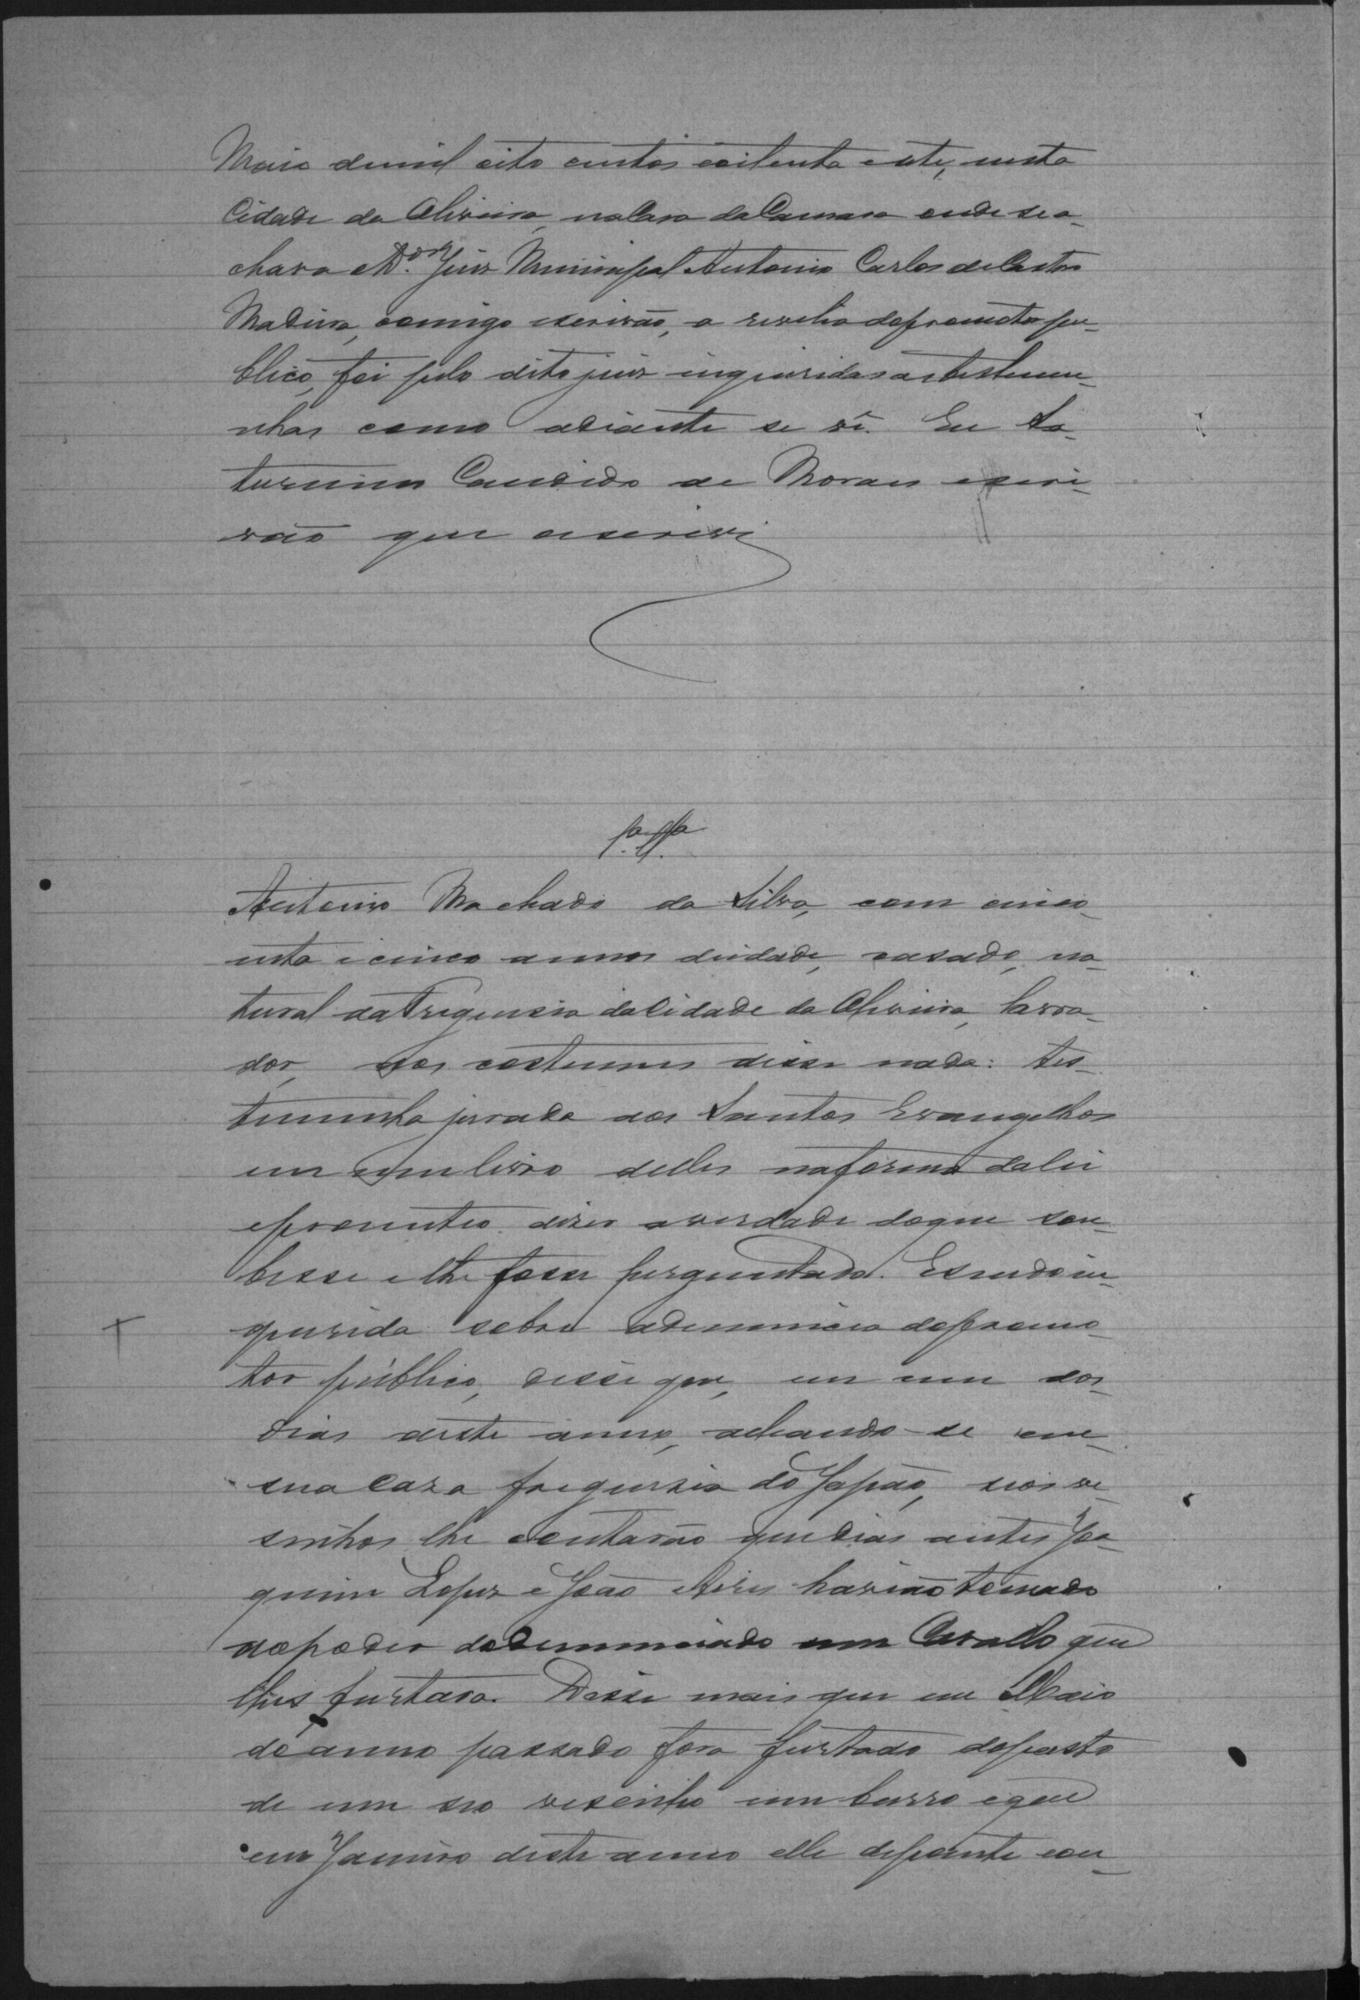 Maio de mil oito centos oitenta e sete, nesta
Cidade da Oliveira, na Casa da Camara onde se a-
chava o D.or Juiz Municipal Antonio Carlos de Castro
Madeira, comigo escrivão, a revelia do promotor pu-
blico, foi pelo dito juiz inquiridas as testemu-
nhas como adiante se vê. Eu Sa-
turnino Candido de Moraes escri-
vão que escrevi
1.a T.a
Antonio Machado da Silva, com cinco-
enta e cinco annos de idade, casado, na-
tural da Freguesia da Cidade da Oliveira, lavra-
dor, aos costumes disse nada: tes-
temunha jurada aos Santos Evangelhos
em um livro delles na forma da lei
e prometteo dizer a verdade do que sou-
besse e lhe fosse perguntado. E sendo in-
querida sobre a denuncia do promo-
tor público, disse que, em um dos
dias deste anno, achando-se em
sua casa freguesia do Japão, seos ve-
sinhos lhe contarão que dias antes Joa-
quim Lopes e João Alves havião tomado
do poder do denunciado um Cavallo que
lhes furtara. Disse mais que em Maio
do anno passado fora furtado do pasto
de um seo vesinho um burro e que
em Janeiro deste anno elle depoente con-